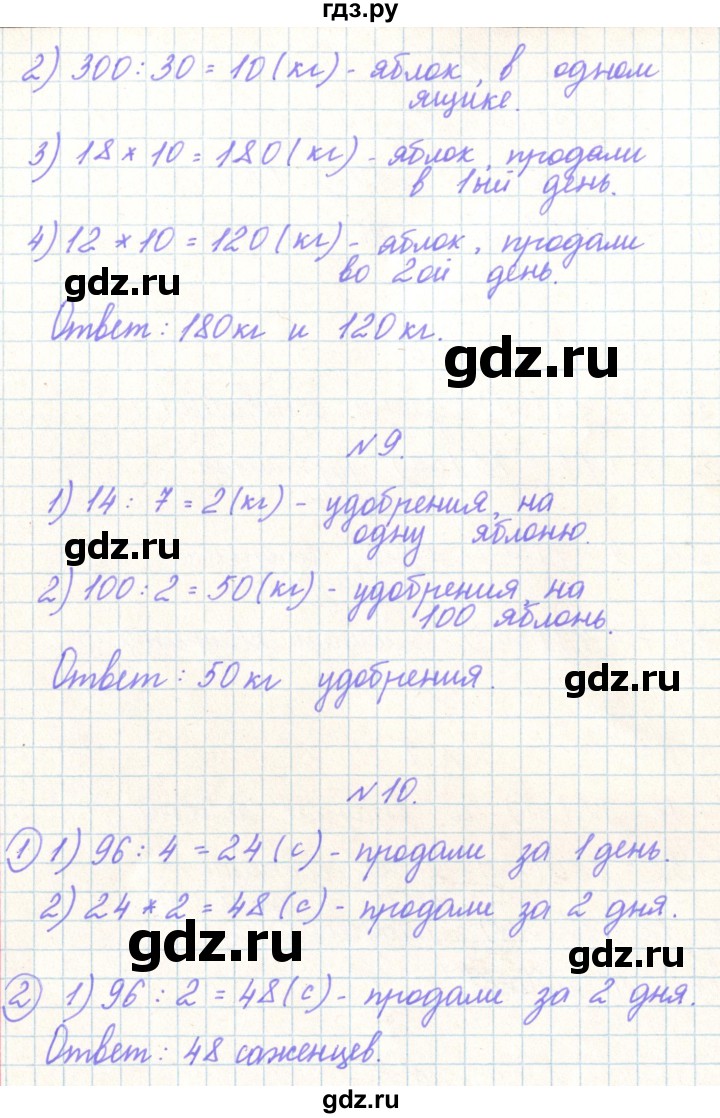 гдз.ру
2) 300 : 30 = 10 (кг) - яблок, в одном
ящике.
3) 18 * 10 = 180 (кг) - яблок, продали
в 1ый день.
4) 12 * 10 = 120 (кг) - яблок, продали
во 2ой день.
gdz.ru
Ответ: 180 кг и 120 кг.
gdz.ru
№ 9.
1) 14 : 7 = 2 (кг) - удобрения, на
одну яблоню.
gdz.ru
2) 100 : 2 = 50 (кг) - удобрения, на
100 яблонь.
Ответ: 50 кг удобрения.
gdz.ru
№ 10.
① 1) 96 : 4 = 24 (с) - продали за 1 день.
2) 24 * 2 = 48 (с) - продали за 2 дня.
gdz.ru
gdz.ru
② 1) 96 : 2 = 48 (с) - продали за 2 дня.
Ответ: 48 саженцев.
gdz.ru